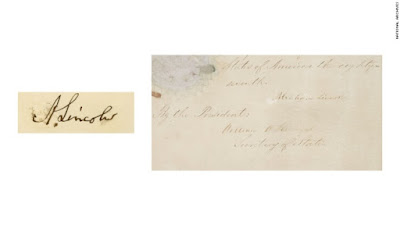 A. Lincoln
States of America the eighty
seventh.
By the President:
William H. Seward
Secretary of State.
NATIONAL ARCHIVES